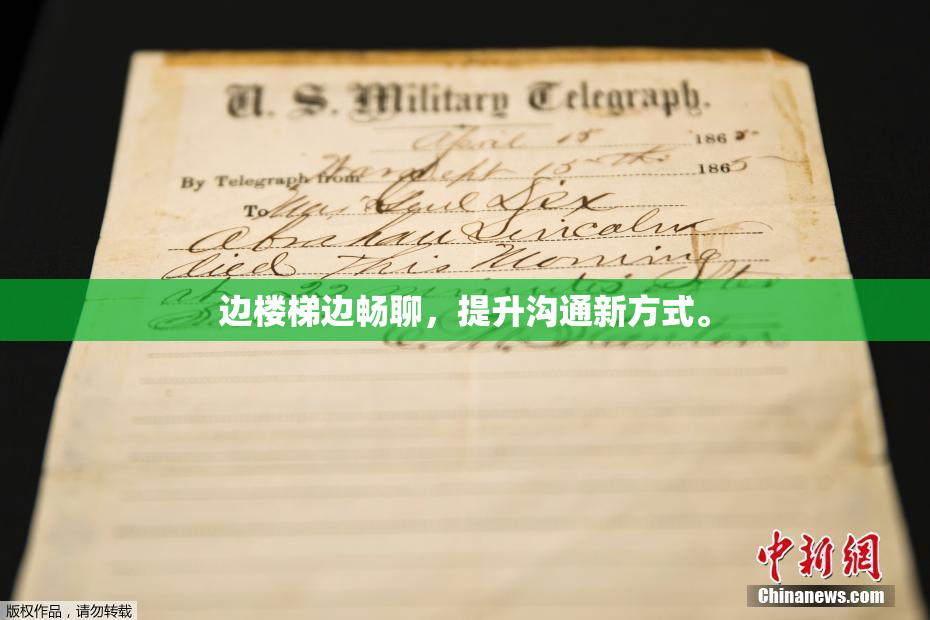 U. S. Military Telegraph.
April 15 1865
By Telegraph from War Dept 15th 1865
To Maj Genl Dix
Abraham Lincoln
died This Morning
at 22 minutes after
边楼梯边畅聊，提升沟通新方式。
中新网
Chinanews.com
版权作品，请勿转载